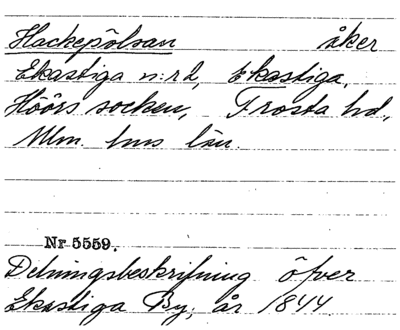 Hackepölsan åker
Ekastiga n:r 2, Ekastiga,
Höörs socken, Frosta hd,
Mlm. hus län.
Nr 5559.
Delningsbeskrifning öfver
Ekastiga By, år 1844.